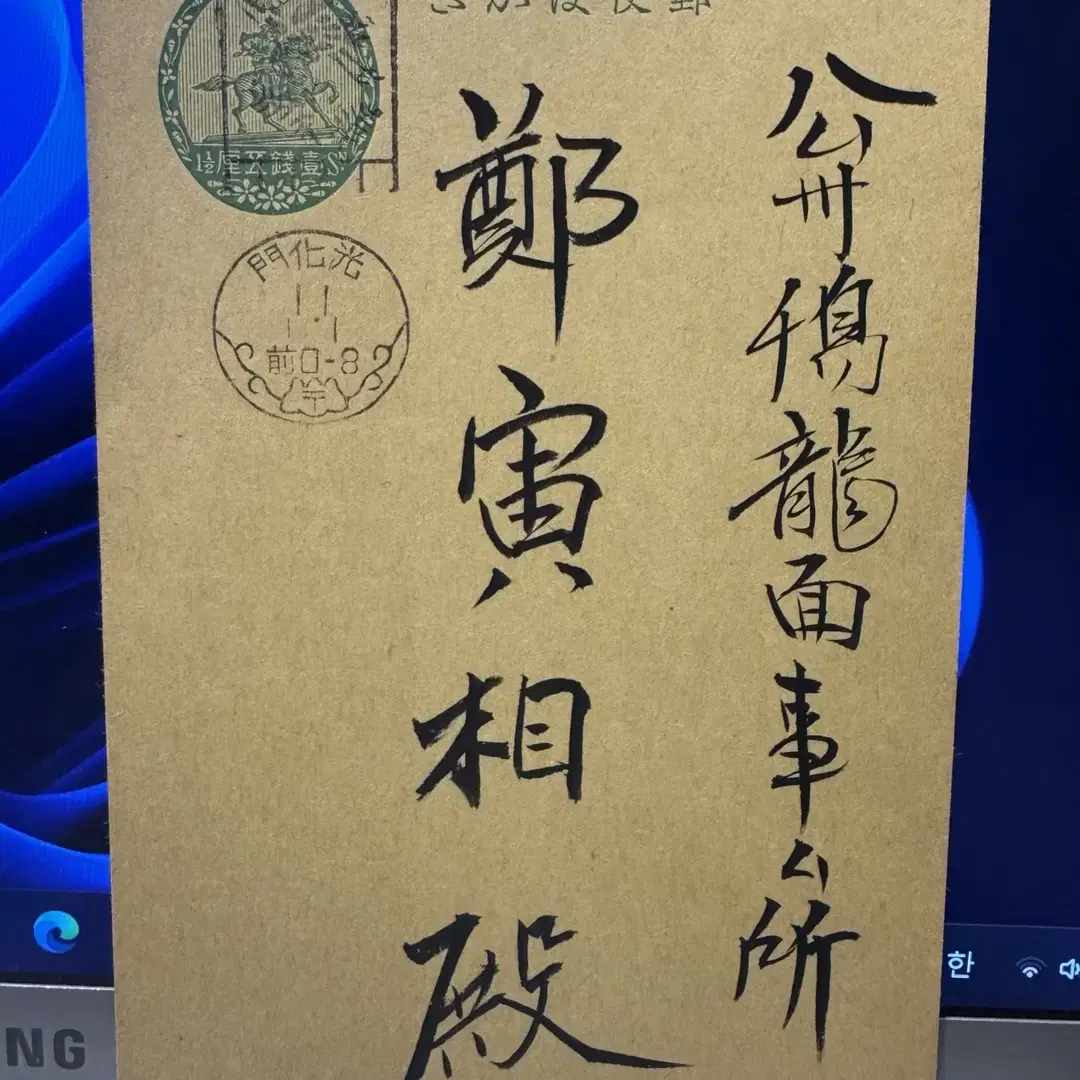 郵便はかき
公州鷄龍面事ム所
鄭寅相殿
1½壹錢五厘Sn
光化門
11
1.1
前0-8
〒
한
NG